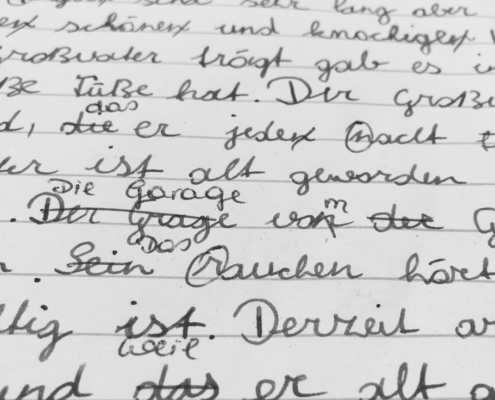 sehr lang aber
schönen und knochigen
Großvater trägt gab es
Füße hat. Der Große
das
d, die er jeden Nacht
ist alt geworden
Die Garage
. Der Grage von m der G
Das
. Sein Rauchen hört
tig ist. Derzeit
weil
und das er alt